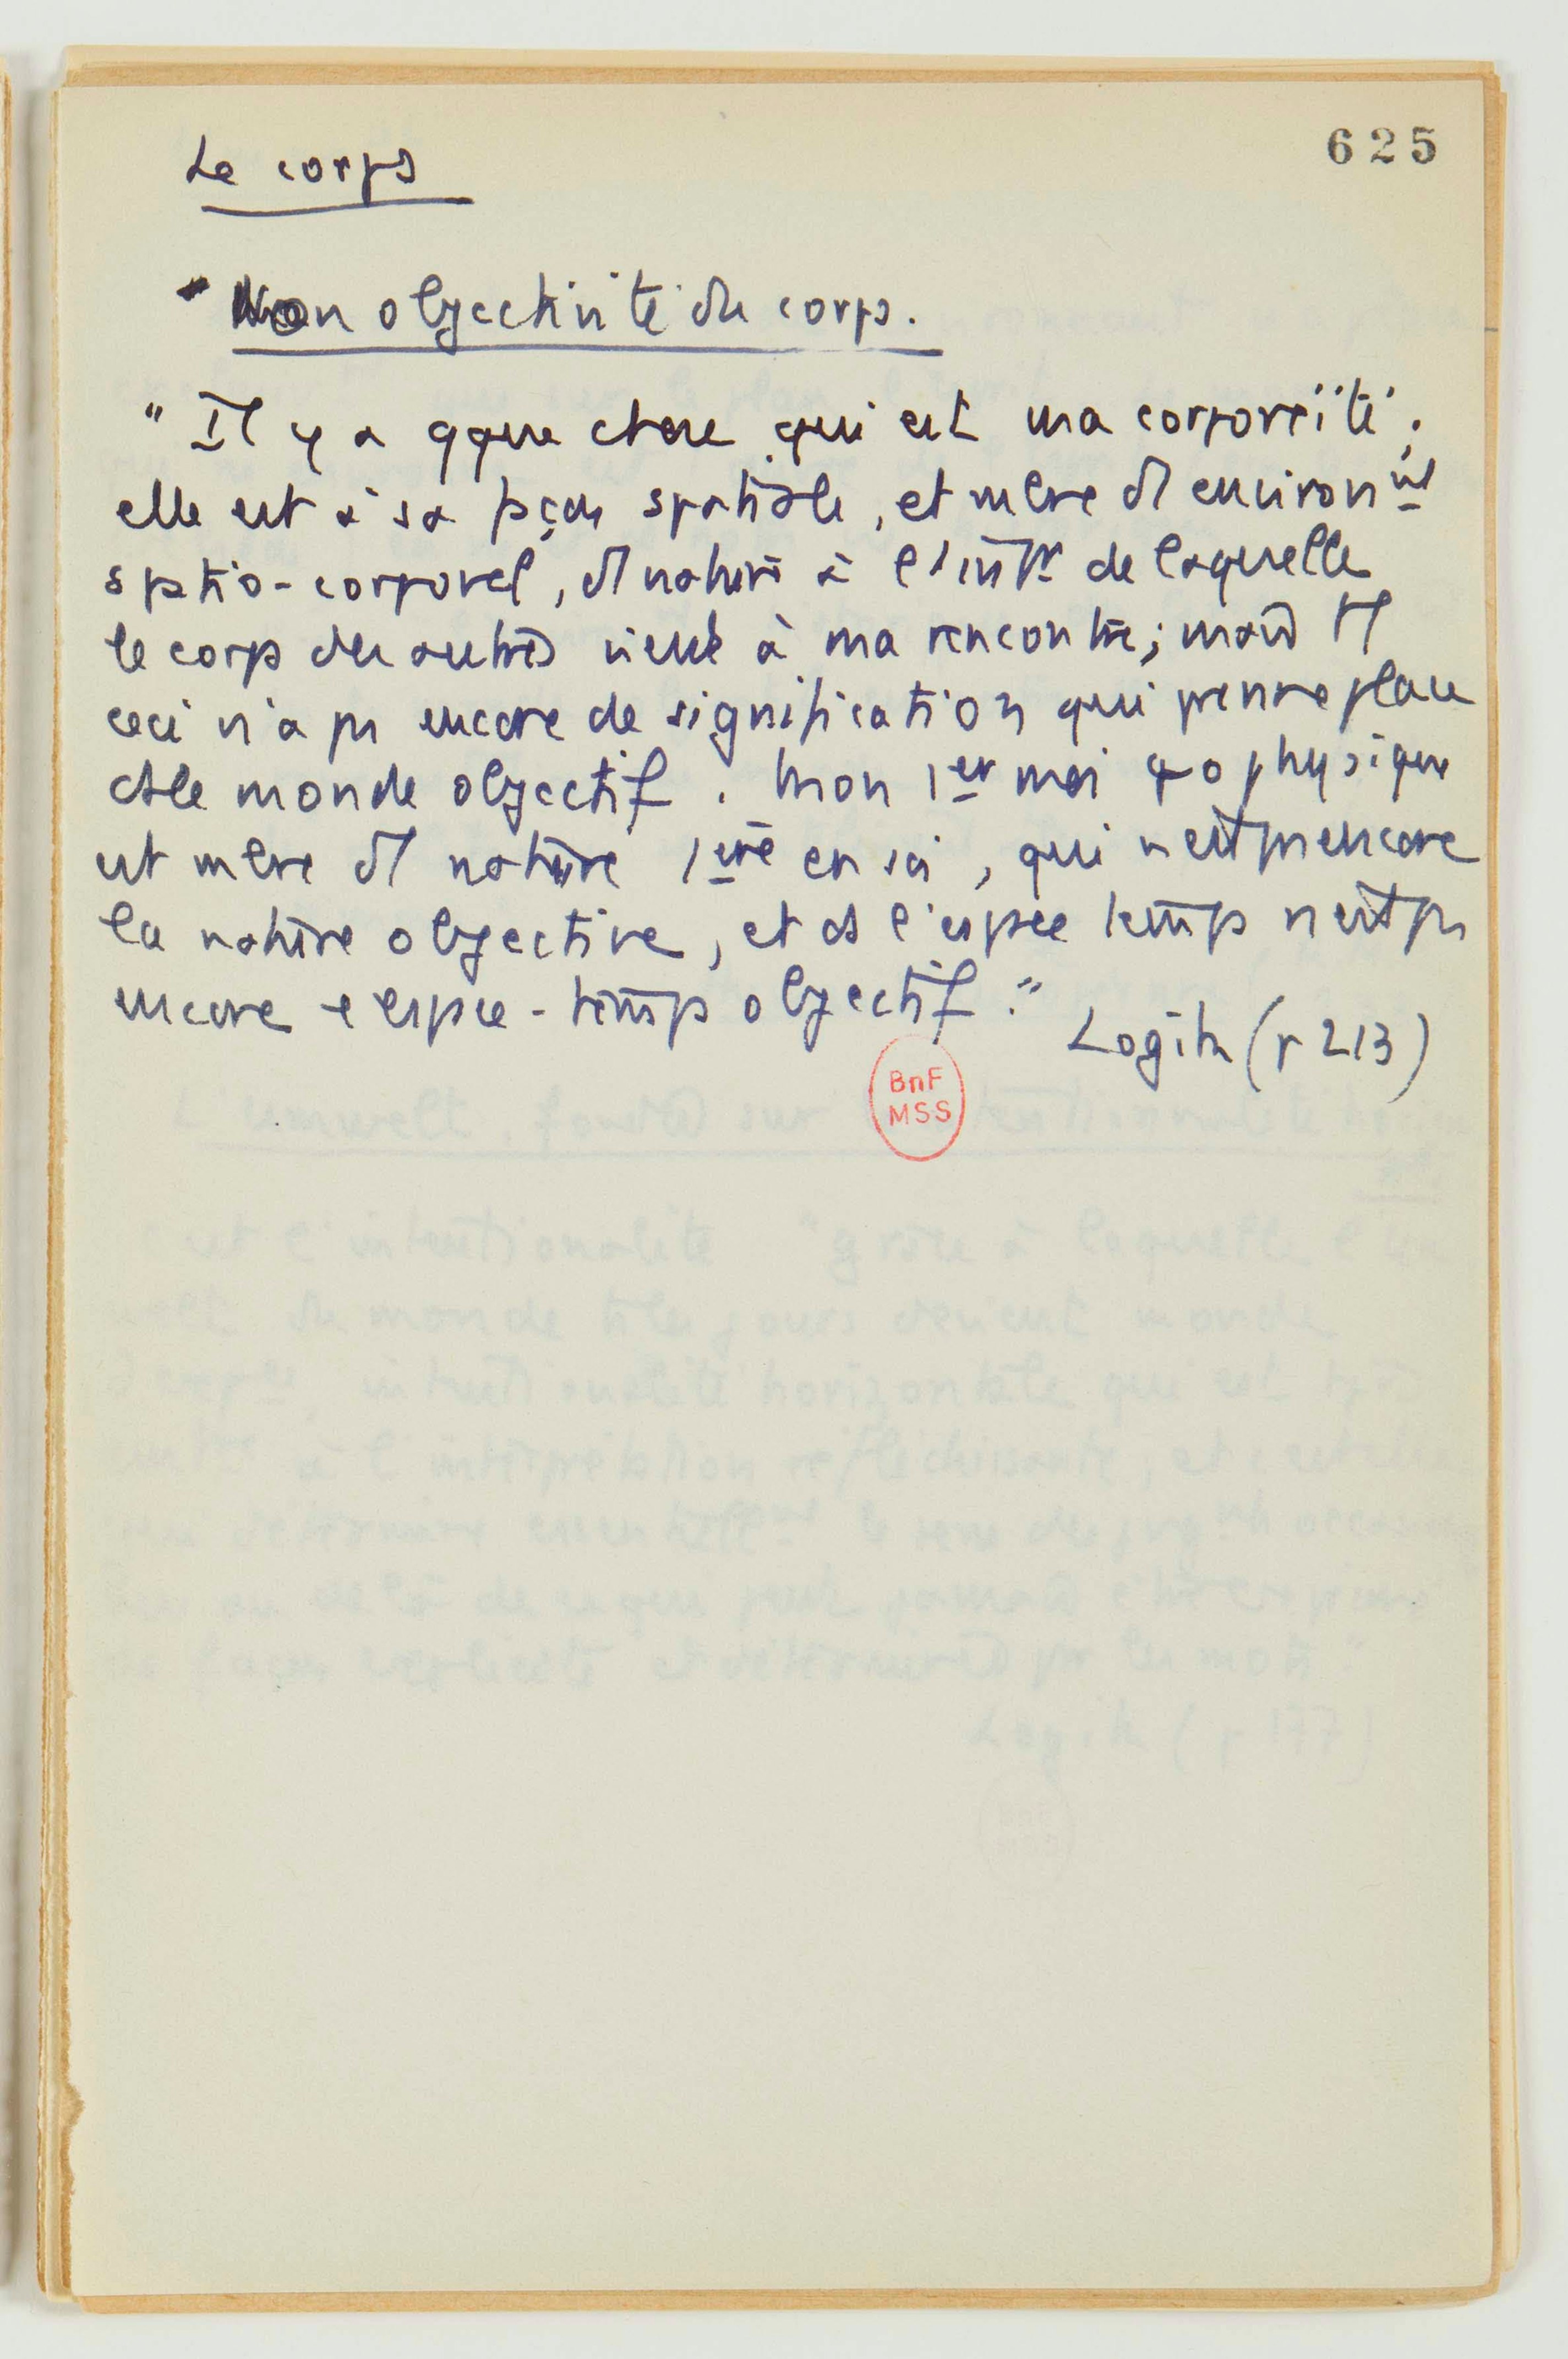 625
Le corps
Non objectivité du corps.
" Il y a qque chose qui est ma corporéité ;
elle est à sa façon spatiale, et membre d' environnt
spatio-corporel, d' nature à l'intr de laquelle
le corps des autres vient à ma rencontre ; mais tt
ceci n'a pas encore de signification qui prenne place
ds le monde objectif. Mon 1er moi ψo physique
est membre d' nature 1ère en soi, qui n'est pas encore
la nature objective, et ds l'espace temps n'est pas
encore espace-temps objectif." Logik (p 213)
BnF
MSS